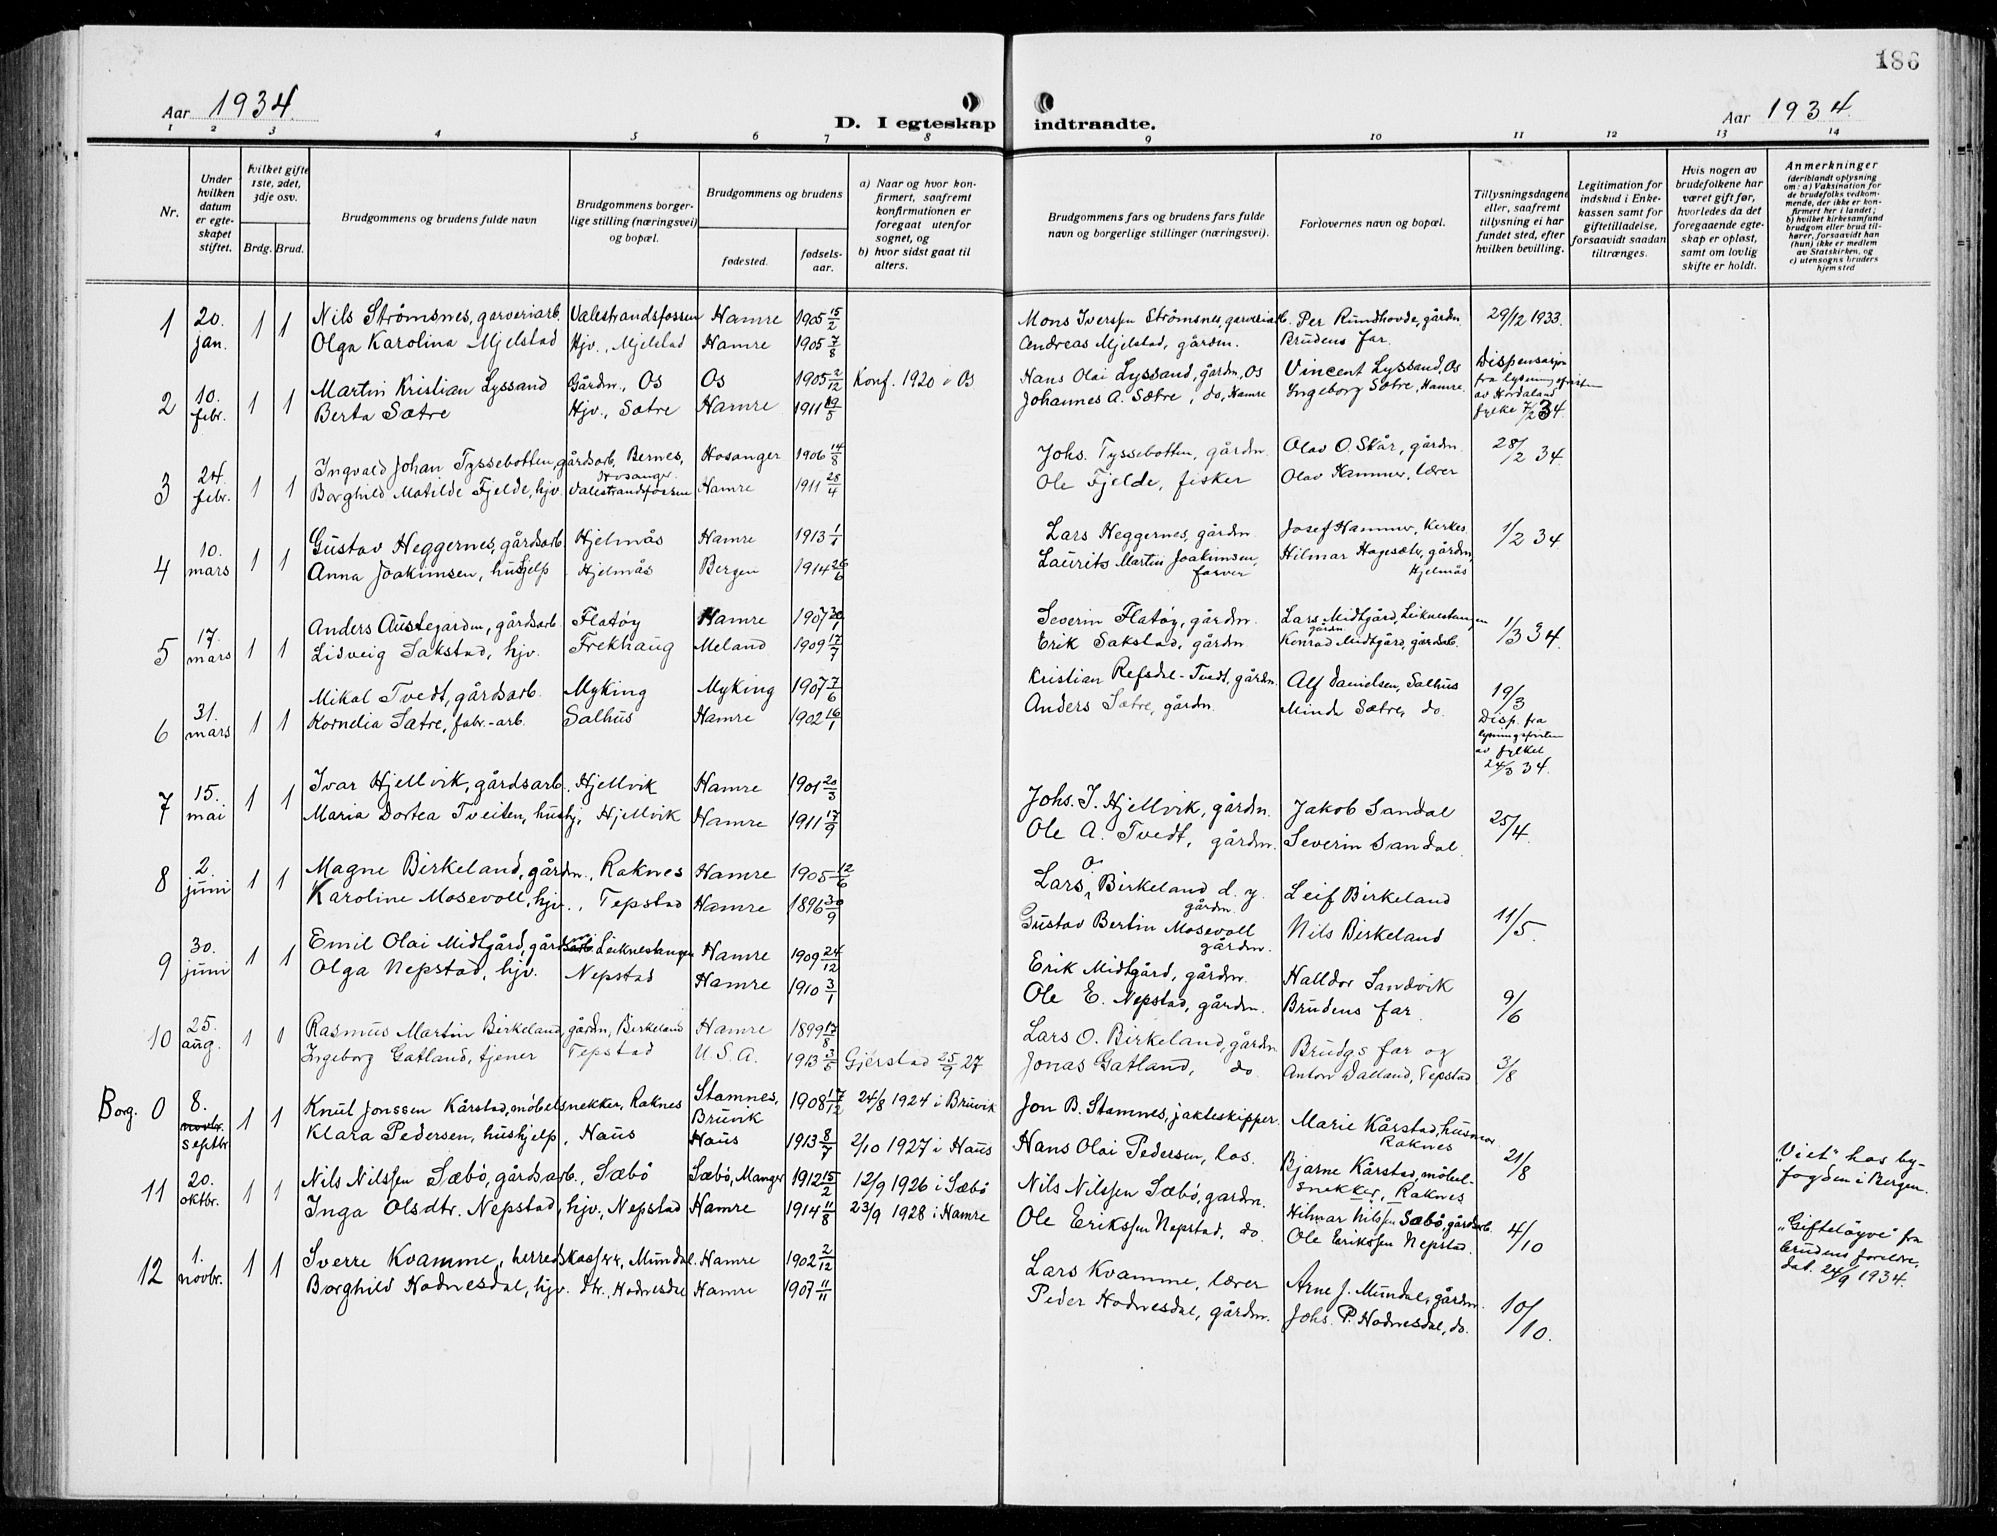 186
Aar 1934.
D. I egteskap indtraadte.
Aar 1934.
1 2 3 4 5 6 7 8 9 10 11 12 13 14
Nr.
Under hvilken datum er egteskapet stiftet.
Hvilket gifte 1ste, 2det, 3dje osv.
Brdg. Brud.
Brudgommens og brudens fulde navn
Brudgommens borgerlige stilling (næringsvei) og bopæl.
Brudgommens og brudens
fødested.
fødselsaar.
a) Naar og hvor konfirmert, saafremt konfirmationen er foregaat utenfor sognet, og
b) hvor sidst gaat til alters.
Brudgommens fars og brudens fars fulde navn og borgerlige stillinger (næringsvei).
Forlovernes navn og bopæl.
Tillysningsdagene eller, saafremt tillysning ei har fundet sted, efter hvilken bevilling.
Legitimation for indskud i Enkekassen samt for giftetilladelse, forsaavidt saadan tiltrænges.
Hvis nogen av brudefolkene har været gift før, hvorledes da det foregaaende egteskap er opløst, samt om lovlig skifte er holdt.
Anmerkninger
(deriblandt oplysning om: a) Vaksination for de brudefolks vedkommende, der ikke er konfirmert her i landet; b) hvilket kirkesamfund brudgom eller brud tilhører, forsaavidt han (hun) ikke er medlem av Statskirken, og c) utensogns bruders hjemsted
1 20. jan. 1 1 Nils Strømsnes, garveriarb. Valestrandsfossen Hamre 1905 15/2 Mons Iverssen Strømsnes, garveriarb. Per Rundhovde, gårdn. 29/12 1933.
Olga Karolina Mjelstad Hjv., Mjelstad Hamre 1905 7/8 Andreas Mjelstad, gårdm. Brudens far.
2 10. febr. 1 1 Martin Kristian Lyssand Gårdm., Os Os 1905 2/12 Konf. 1920 i Os Hans Olai Lyssand, gårdm, Os Vincent Lyssand, Os Dispensasjon fra lysningsfristen av Hordaland fylke 7/2 34.
Berta Sætre Hjv., Sætre Hamre 1911 19/5 Johannes A. Sætre, do, Hamre Ingeborg Sætre, Hamre.
3 24. febr. 1 1 Ingvald Johan Tyssebotten, gårdsarb, Bernes, Hosanger Hosanger 1906 14/8 Johs. Tyssebotten, gårdm. Olav O. Skår, gårdm. 28/2 34.
Borghild Matilde Fjelde, hjv. Valestrandsfossen Hamre 1911 28/4 Ole Fjelde, fisker Olav Hammer, lærer
4 10. mars 1 1 Gustav Heggernes, gårdsarb. Hjelmås Hamre 1913 1/1 Lars Heggernes, gårdm. Josef Hammer, Kerkes, 1/2 34
Anna Joakimsen, hushjelp Hjelmås Bergen 1914 26/6 Laurits Martin Joakimsen, farver Hilmar Hagesæter, gårdm, Hjelmås
5 17. mars 1 1 Anders Austegarden, gårdsarb Flatøy Hamre 1907 30/1 Severin Flatøy, gårdm. Lars Midtgård, Leiknestangen gårdm. 1/3 34.
Lidveig Sakstad, hjv. Frekhaug Meland 1909 17/7 Erik Sakstad, gårdm Konrad Midtgård, gårdsarb.
6 31. mars 1 1 Mikal Tvedt, gårdsarb. Myking Myking 1907 7/6 Kristian Refsdal-Tvedt, gårdm. Alf Danielsen, Salhus 19/3
Kornelia Sætre, fabr.-arb. Salhus Hamre 1902 16/1 Anders Sætre, gårdm. Minda Sætre, do. Disp. fra lysningsfristen av fylket 24/3 34.
7 15. mai 1 1 Ivar Hjellvik, gårdsarb., Hjellvik Hamre 1901 20/3 Johs. J. Hjellvik, gårdm. Jakob Sandal 25/4.
Maria Dortea Tveiten, hushj, Hjellvik Hamre 1911 17/9 Ole A. Tvedt, gårdm. Severin Sandal.
8 2. juni 1 1 Magne Birkeland, gårdm., Raknes Hamre 1905 12/6 Lars O. Birkeland d. y. gårdm. Leif Birkeland 11/5.
Karoline Mosevoll, hjv., Tepstad Hamre 1896 30/9 Gustav Bertin Mosevoll gårdm. Nils Birkeland
9 30. juni 1 1 Emil Olai Midtgård, gårdsarb Leiknestangen Hamre 1909 24/12 Erik Midtgård, gårdm. Halldor Sandvik 9/6
Olga Nepstad, hjv. Nepstad Hamre 1910 3/1 Ole E. Nepstad, gårdm. Brudens far.
10 25. aug. 1 1 Rasmus Martin Birkeland, gårdm, Birkeland Hamre 1899 17/8 Lars O. Birkeland, gårdm Brudgs far og 3/8
Ingeborg Gatland, tjener Tepstad U.S.A. 1913 3/5 Gjerstad 25/9 27 Jonas Gatland, do. Anton Dalland, Tepstad
Borg. 0 8. novbr. septbr 1 1 Knut Jonssen Kårstad, møbelsnekker, Raknes Stamnes, Bruvik 1908 17/12 24/8 1924 i Bruvik Jon B. Stamnes, jakteskipper. Marie Kårstad, husmor Raknes 21/8
Klara Pedersen, hushjelp, Haus Haus 1913 8/7 2/10 1927 i Haus Hans Olai Pedersen, los. Bjarne Kårstad, møbelsnekker, Raknes „Viet" hos byfogden i Bergen.
11 20. oktbr. 1 1 Nils Nilssen Sæbø, gårdsarb., Sæbø Sæbø, Manger 1912 15/2 12/9 1926 i Sæbø Nils Nilssen Sæbø, gardm. Hilmar Nilssen Sæbø, gårdsarb. 4/10
Inga Olsdtr. Nepstad, hjv., Nepstad Hamre 1914 11/8 23/9 1928 i Hamre Ole Erikssen Nepstad, do. Ole Erikssen Nepstad. „Gifteløyve" fra brudens foreldre, dat. 24/9 1934.
12 1. novbr. 1 1 Sverre Kvamme, herredskasserer, Mundal. Hamre 1902 2/12 Lars Kvamme, lærer Arne J. Mundal, gårdm. 10/10.
Borghild Hodnesdal, hjv. Hodnesdal Hamre 1907 11/11 Peder Hodnesdal, gårdm. Johs. P. Hodnesdal, do.